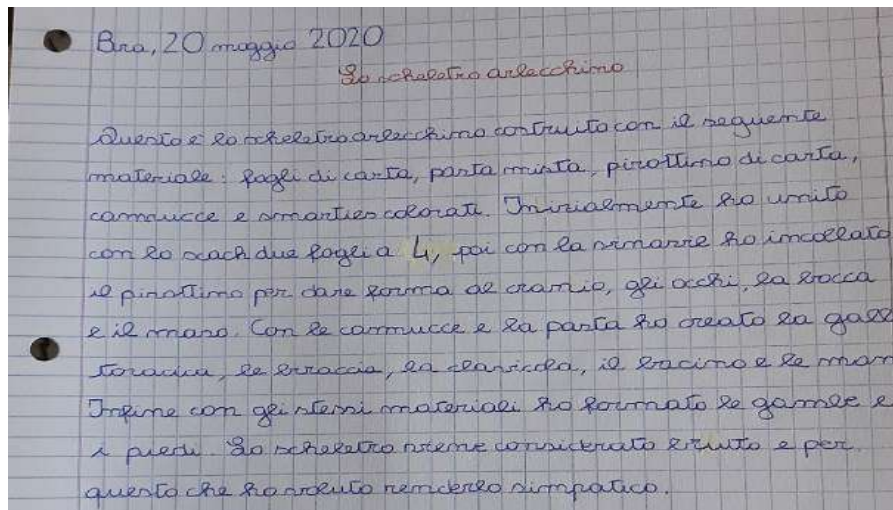 Bra, 20 maggio 2020
Lo scheletro arlecchino
Questo è lo scheletro arlecchino costruito con il seguente
materiale: fogli di carta, pasta mista, pirottino di carta,
cannucce e smarties colorati. Inizialmente ho unito
con lo scach due fogli a 4, poi con la rimanente ho incollato
il pirottino per dare forma al cranio, gli occhi, la bocca
e il naso. Con le cannucce e la pasta ho creato la gabb
toracica, le braccia, la clavicola, il bacino e le man
Infine con gli stessi materiali ho formato le gambe e
i piedi. Lo scheletro viene considerato brutto e per
questo che ho voluto renderlo simpatico.